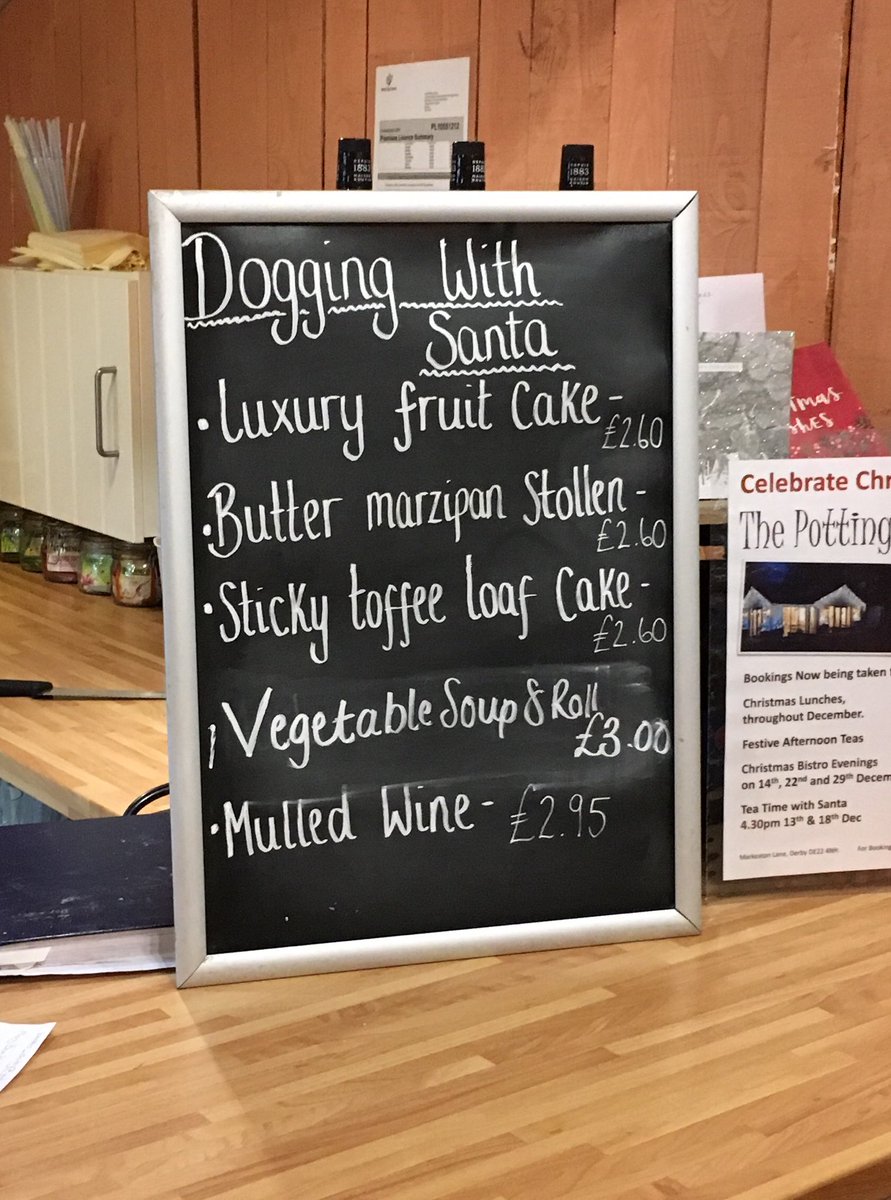 PL10051212
Premises Licence Summary
DEPUIS
1883
DEPUIS
1883
DEPUIS
1883
Dogging With
Santa
• Luxury fruit Cake -
£2.60
• Butter marzipan Stollen -
£2.60
• Sticky toffee loaf Cake -
£2.60
Vegetable Soup & Roll
£3.00
• Mulled Wine - £2.95
Celebrate Chr
The Potting
Bookings Now being taken
Christmas Lunches,
throughout December.
Festive Afternoon Teas
Christmas Bistro Evenings
on 14th, 22nd and 29th Decem
Tea Time with Santa
4.30pm 13th & 18th Dec
Markeaton Lane, Derby DE22 4NH
For Booking